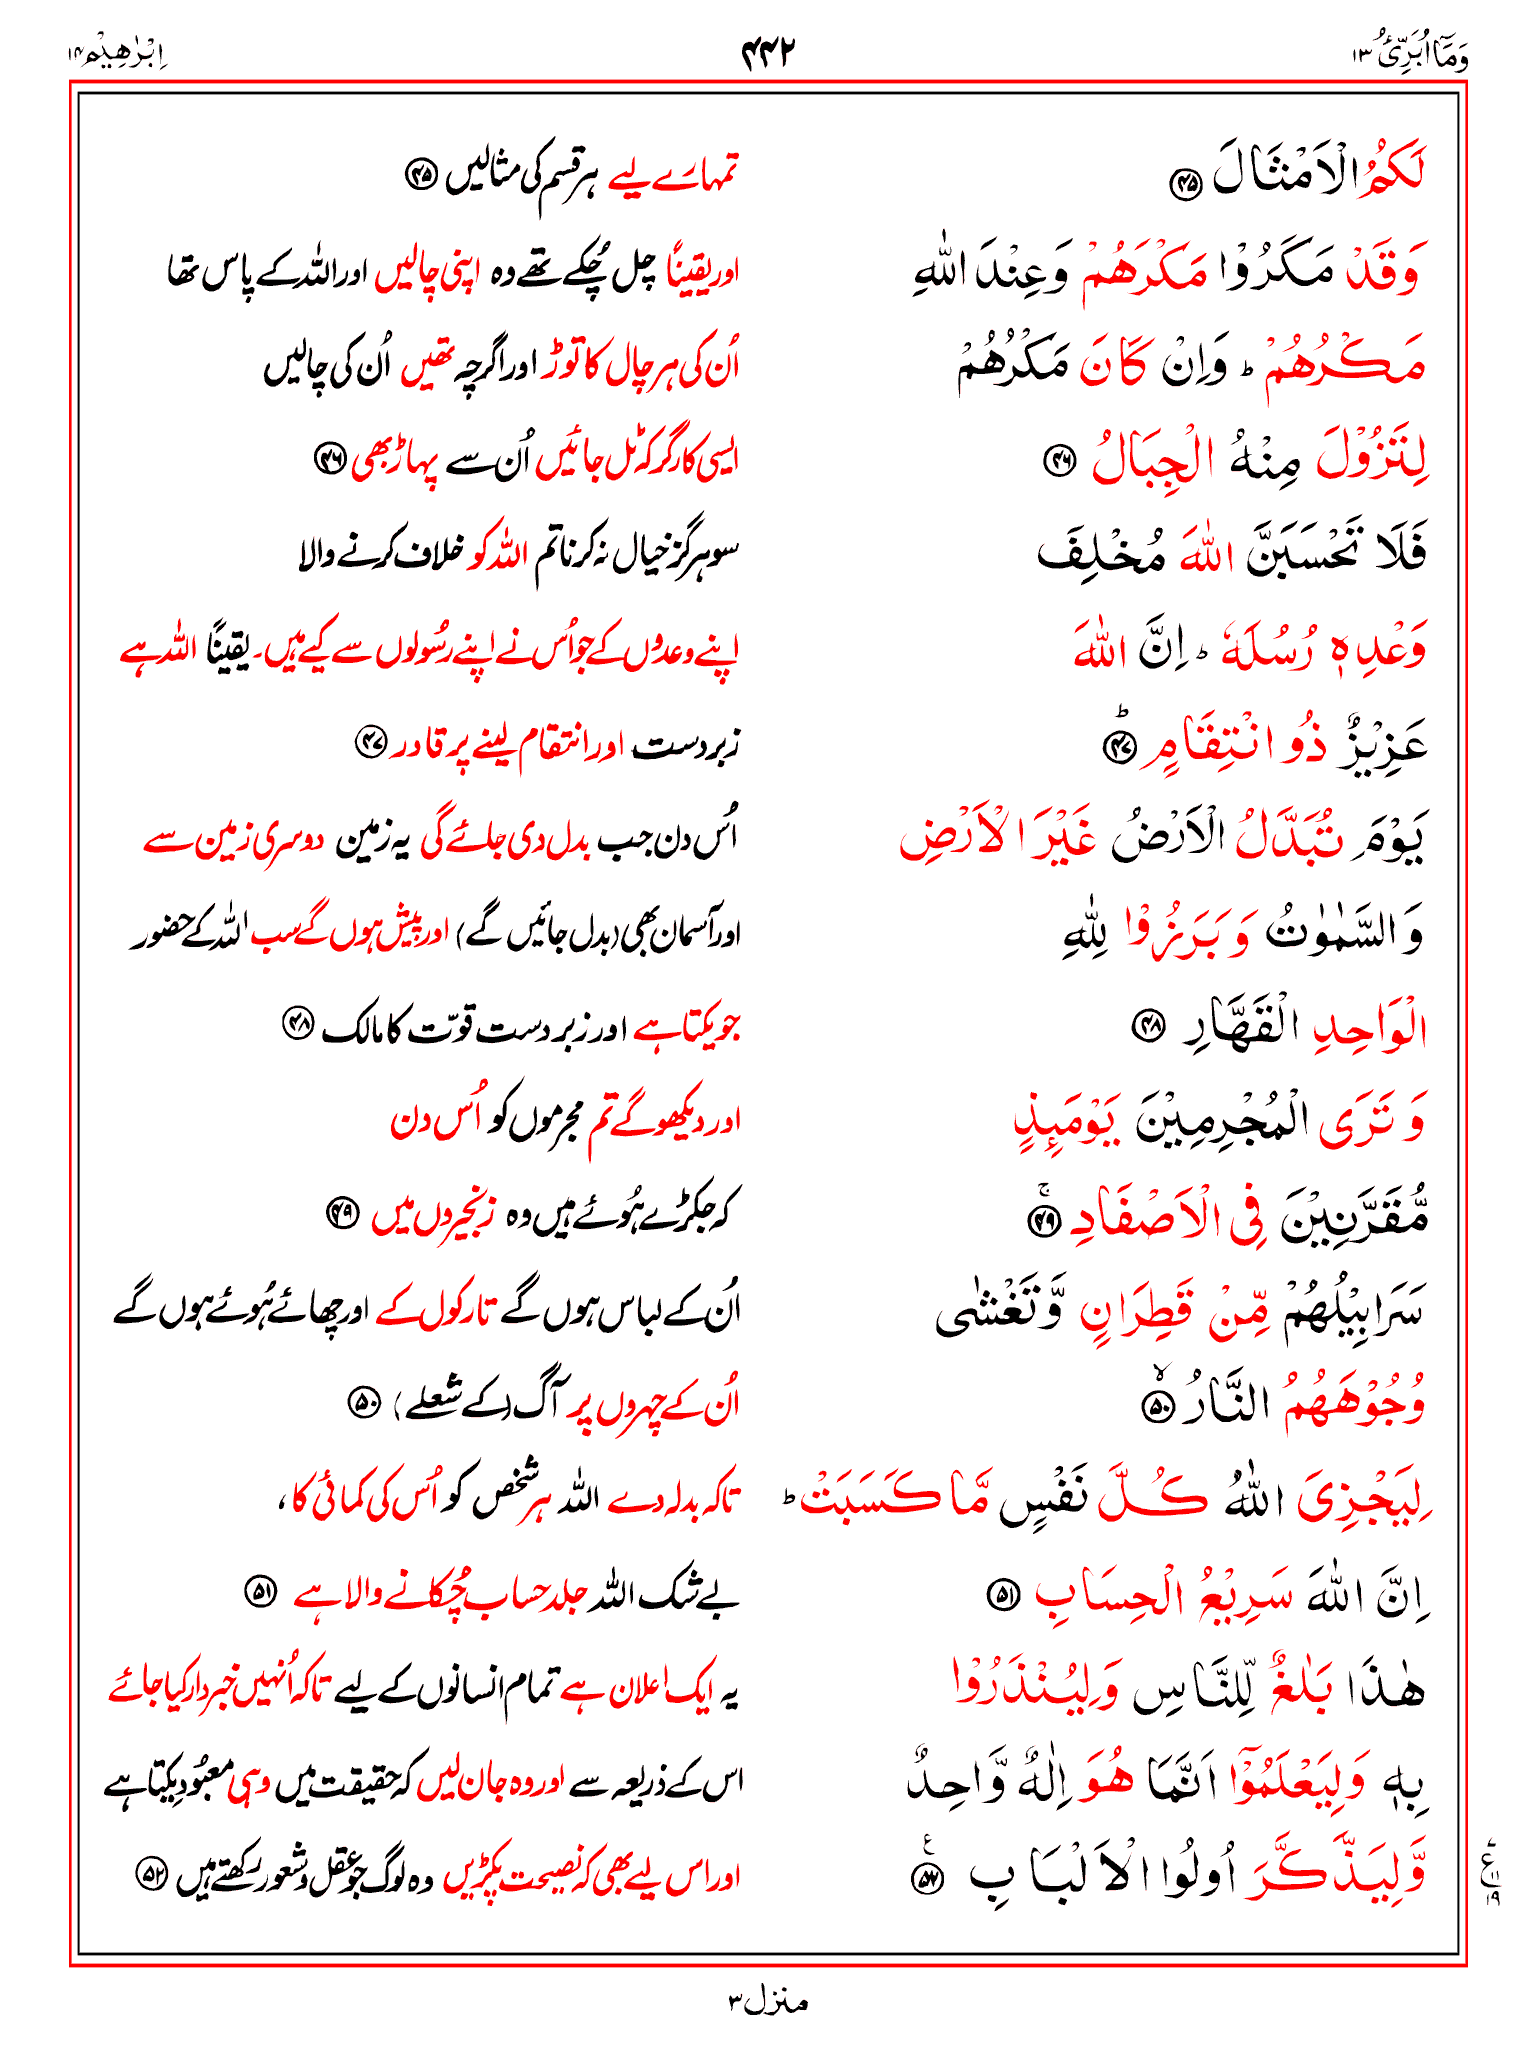 وَمَآ اُبَرِّئُ ۱۳
۴۴۲
اِبْرٰهِيْم ۱۴
لَكُمُ الْاَمْثَالَ ۴۵
تمہارے لیے ہر قسم کی مثالیں ۴۵
وَقَدْ مَكَرُوْا مَكْرَهُمْ وَعِنْدَ اللّٰهِ
اور یقیناً چل چُکے تھے وہ اپنی چالیں اور اللہ کے پاس تھا
مَكْرُهُمْ ؕ وَاِنْ كَانَ مَكْرُهُمْ
اُن کی ہر چال کا توڑ اور اگرچہ تھیں اُن کی چالیں
لِتَزُوْلَ مِنْهُ الْجِبَالُ ۴۶
ایسی کارگر کہ ٹل جائیں اُن سے پہاڑ بھی ۴۶
فَلَا تَحْسَبَنَّ اللّٰهَ مُخْلِفَ
سو ہرگز خیال نہ کرنا تم اللہ کو خلاف کرنے والا
وَعْدِهٖ رُسُلَهٗ ؕ اِنَّ اللّٰهَ
اپنے وعدوں کے جو اُس نے اپنے رسُولوں سے کیے ہیں۔ یقیناً اللہ ہے
عَزِيْزٌ ذُو انْتِقَامٍ ؕ ۴۷
زبردست اور انتقام لینے پر قادر ۴۷
يَوْمَ تُبَدَّلُ الْاَرْضُ غَيْرَ الْاَرْضِ
اُس دن جب بدل دی جائے گی یہ زمین دوسری زمین سے
وَ السَّمٰوٰتُ وَ بَرَزُوْا لِلّٰهِ
اور آسمان بھی (بدل جائیں گے) اور پیش ہوں گے سب اللہ کے حضور
الْوَاحِدِ الْقَهَّارِ ۴۸
جو یکتا ہے اور زبردست قوّت کا مالک ۴۸
وَ تَرَى الْمُجْرِمِيْنَ يَوْمَىِٕذٍ
اور دیکھو گے تم مجرموں کو اُس دن
مُّقَرَّنِيْنَ فِى الْاَصْفَادِ ۚ ۴۹
کہ جکڑے ہُوئے ہیں وہ زنجیروں میں ۴۹
سَرَابِيْلُهُمْ مِّنْ قَطِرَانٍ وَّ تَغْشٰى
اُن کے لباس ہوں گے تارکول کے اور چھائے ہُوئے ہوں گے
وُجُوْهَهُمُ النَّارُ ۙ ۵۰
اُن کے چہروں پر آگ (کے شعلے) ۵۰
لِيَجْزِىَ اللّٰهُ كُلَّ نَفْسٍ مَّا كَسَبَتْ ؕ
تاکہ بدلہ دے اللہ ہر شخص کو اُس کی کمائی کا،
اِنَّ اللّٰهَ سَرِيْعُ الْحِسَابِ ۵۱
بے شک اللہ جلد حساب چُکانے والا ہے ۵۱
هٰذَا بَلٰغٌ لِّلنَّاسِ وَلِيُنْذَرُوْا
یہ ایک اعلان ہے تمام انسانوں کے لیے تاکہ اُنہیں خبردار کیا جائے
بِهٖ وَلِيَعْلَمُوْٓا اَنَّمَا هُوَ اِلٰهٌ وَّاحِدٌ
اس کے ذریعہ سے اور وہ جان لیں کہ حقیقت میں وہی معبُودِ یکتا ہے
وَّلِيَذَّكَّرَ اُولُوا الْاَلْبَابِ ۵۲ ع
اور اس لیے بھی کہ نصیحت پکڑیں وہ لوگ جو عقل و شعور رکھتے ہیں ۵۲
۷
ع ۱۱
۱۹
منزل ۳